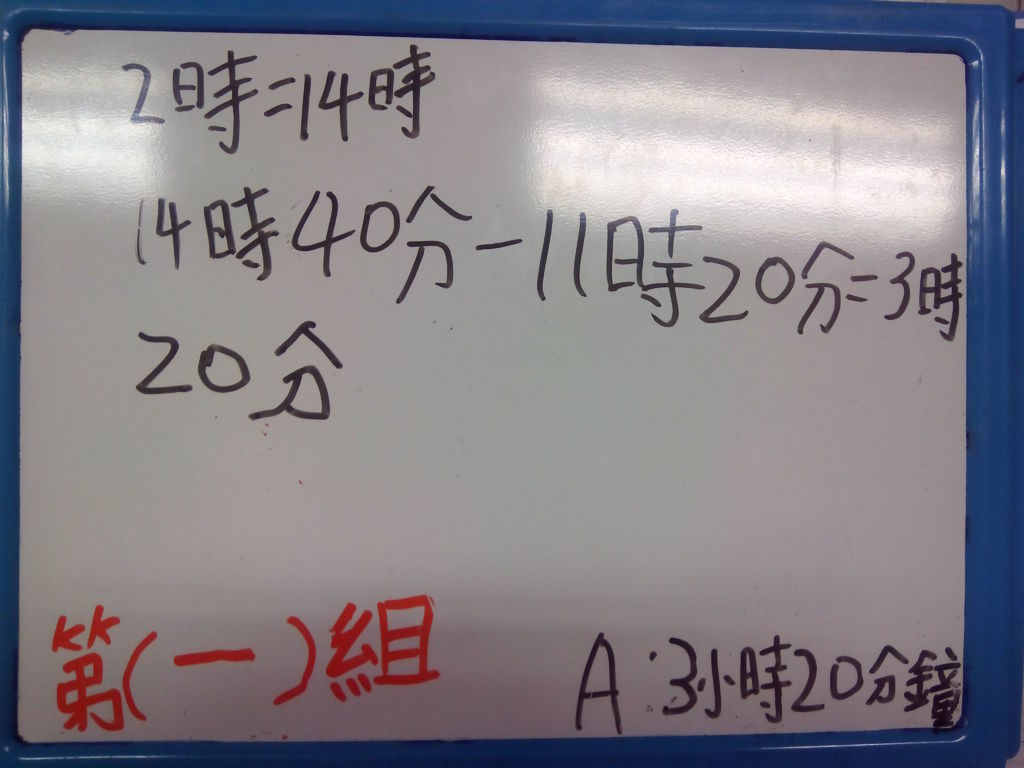 2時=14時
14時40分-11時20分=3時
20分
第(一)組
A:3小時20分鐘